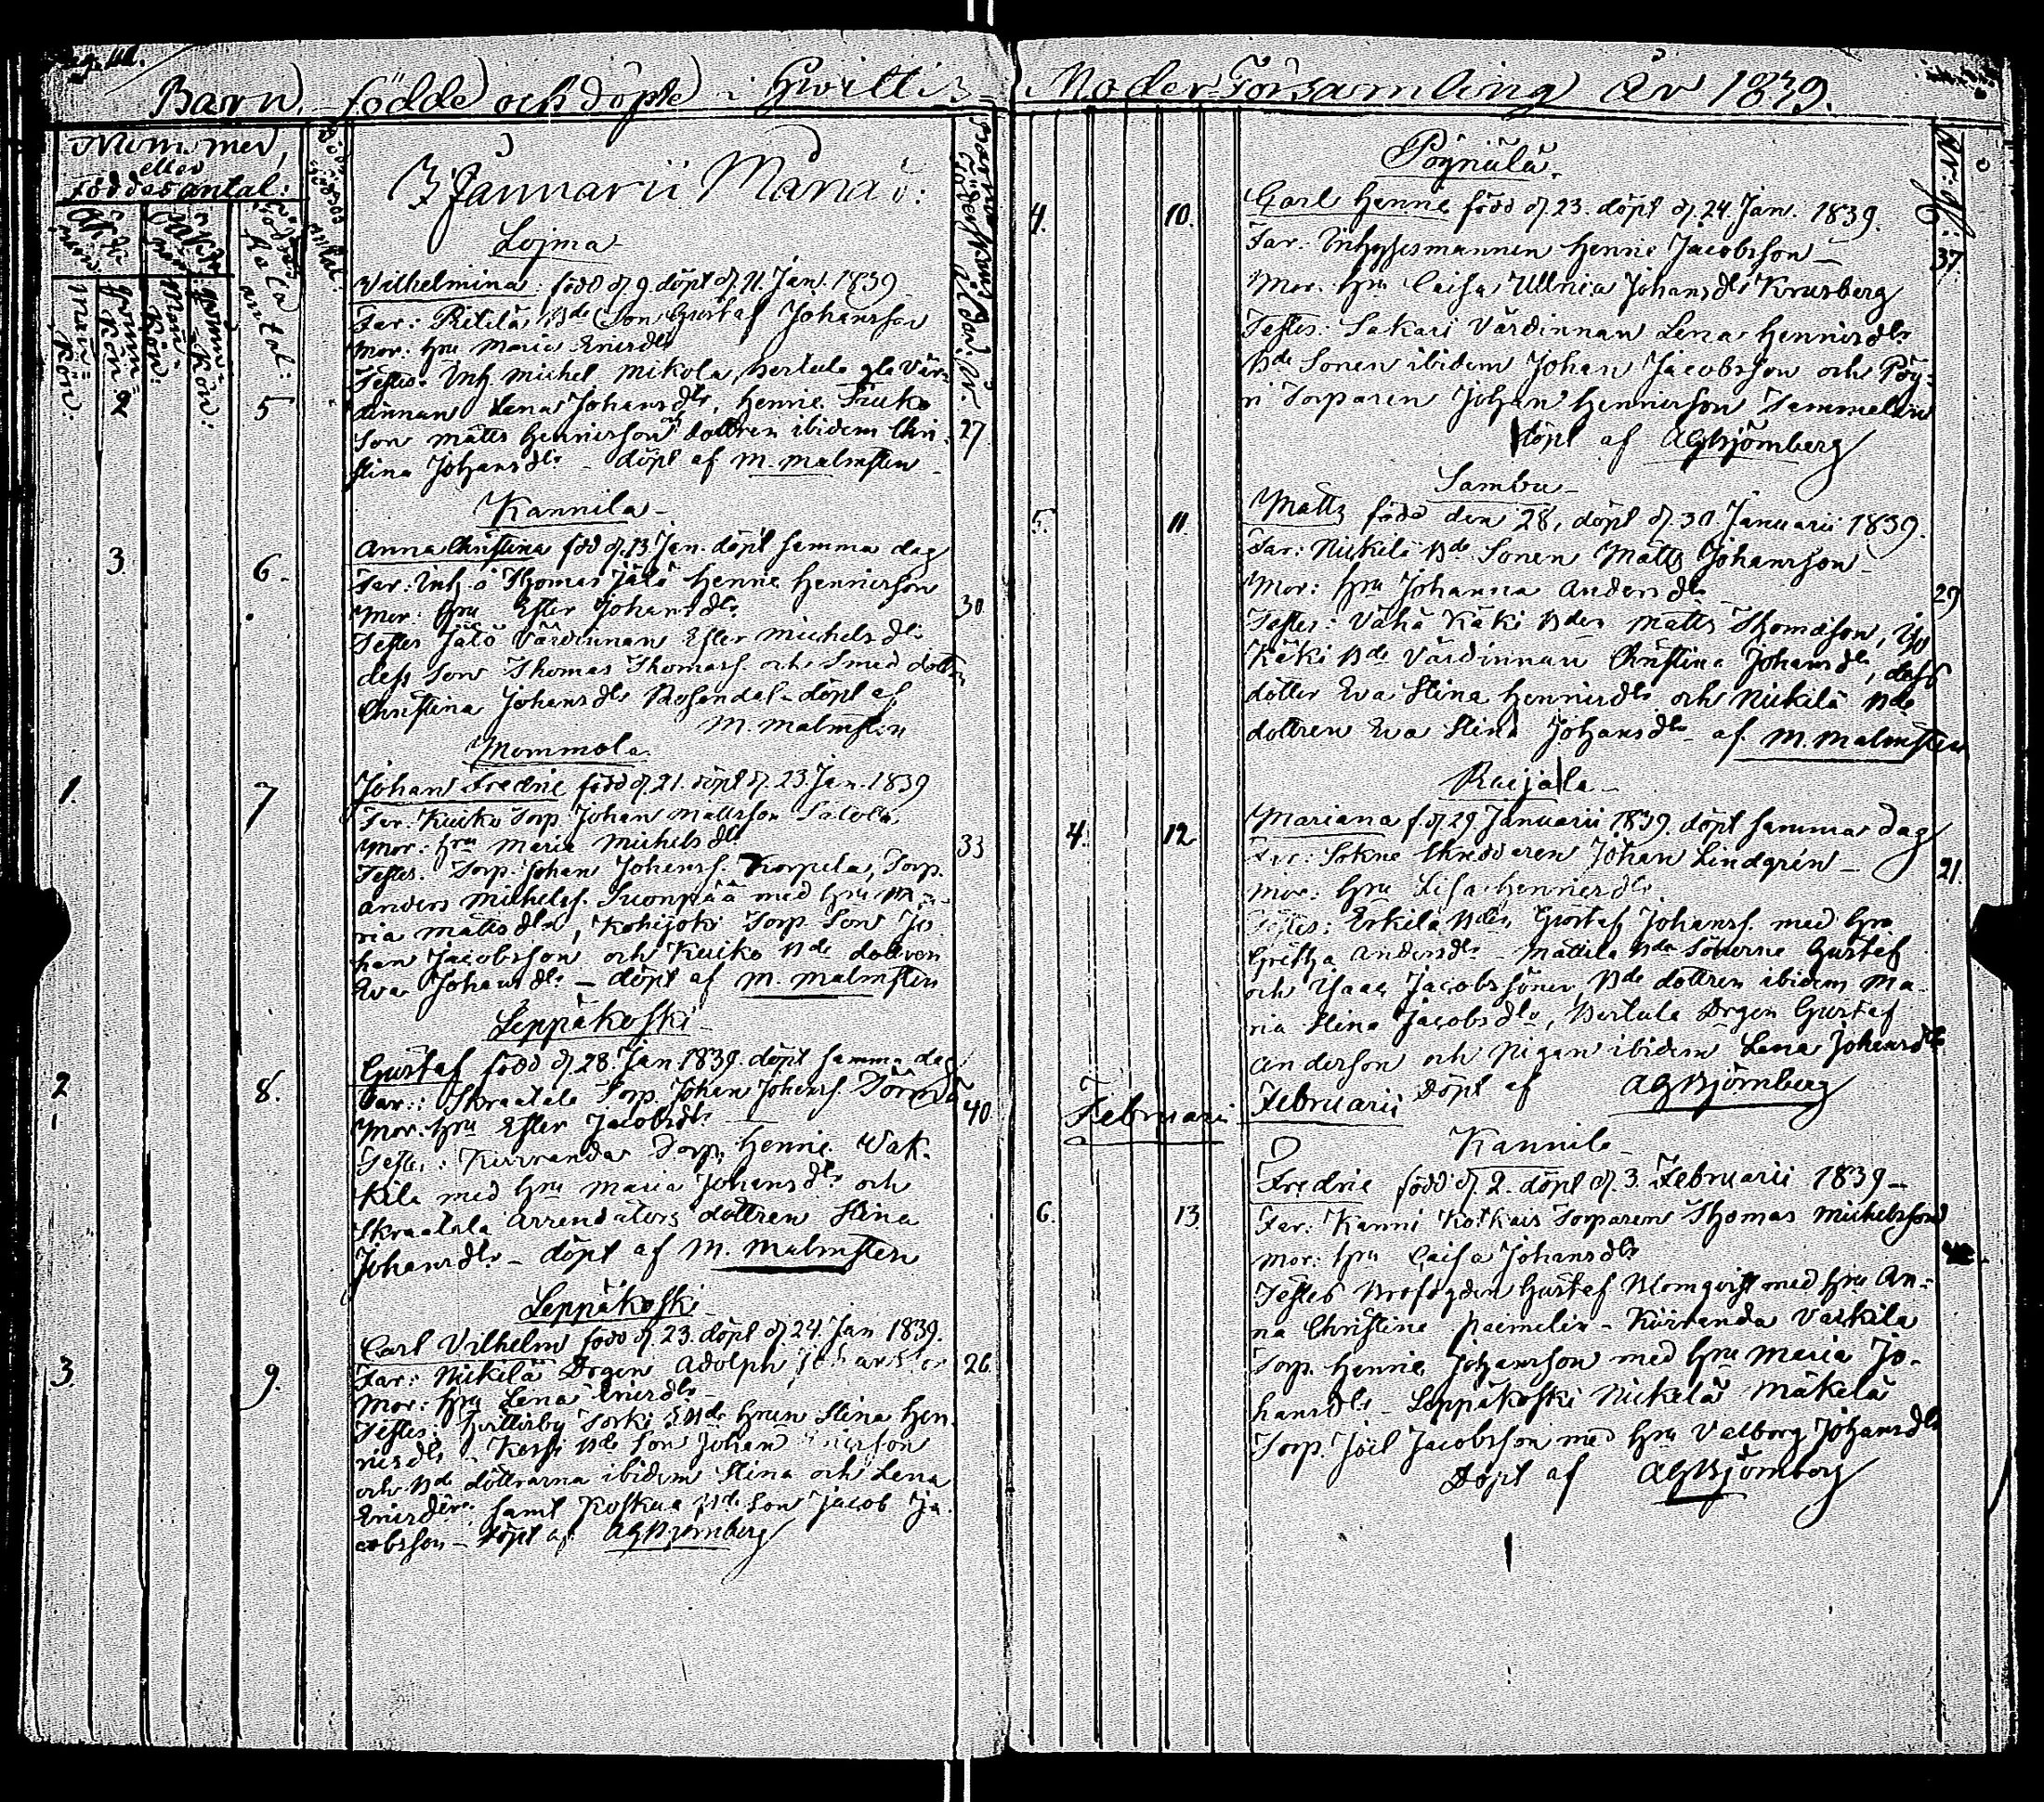 Barn födde och döpte i Hvittis Moder-Församling År 1839.
Nummer,
eller
Föddes antal:
Januarii Månad:
Lojma
Wilhelmina: född d. 9. döpt d. 11. Jan. 1839
Far: Ritilä Bde Son Gustaf Johansson
Mor: hru Maria Enersdr
Testes: Inh Michel Mikola, Bertula gla Vär-
5 dinnan Lena Johansdr, Henric
son Matts Henricson dottren ibidem Chri- 27
stina Johansdr - döpt af M. Malmsten
Kannila
Anna Christina föd d. 13 Jan. döpt samma dag
3. 6. Far: Inh å Thomas Jälö Henric Henricson
Mor: hru Ester Johansdr 30
Testes Jälö Värdinnan Ester Michelsdr
dess Son Thomas Thomass. och Smed dottren
Christina Johansdr Rosendal - döpt af
M. Malmsten
Mommola
1. 7 Johan Fredric född d. 21. döpt d. 23 Jan. 1839
Far: Kuiko Torp. Johan Mattsson Salola
Mor: hru Maria Michelsdr 33
Testes: Torp. Johan Johanss. Korpela, Torp.
Anders Michelss. Suonpää med hru Ma-
ria Mattsdr, Kohijoki Torp. Son Jo-
han Jacobsson och Kuiko Bde dottren
Eva Johansdr - döpt af M. Malmsten
Leppäkoski
Gustaf född d. 28. Jan. 1839. döpt samma dag
2 8. Far: Skraatala Torp. Johan Johanss.
Mor: hru Ester Jacobsdr 40
Testes: Kiiranda Torp. Henric Wak-
kila med hru Maria Johansdr och
Skraatala Arrendators dottren Stina
Johansdr - döpt af M. Malmsten
Leppäkoski
Carl Vilhelm född d. 23. döpt d. 24. Jan 1839.
3. 9. Far: Nickilä Drgen Adolph Johansson 26
Mor: hru Lena Enersdr
Testes: Hvittisby Sorki Bde hrun Stina Hen-
ricsdr - Bde Son Johan
och Bde döttrarna ibidem Stina och Lena
samt Bde Son Jacob Ja-
cobsson - döpt af AGBjörnberg
Pöyniälä
4. 10. Carl Henric född d. 23. döpt d. 24. Jan. 1839.
Far: Inhysesmannen Henric Jacobsson - 37
Mor: hru Caisa Ullrica Johansdr Krusberg
Testes: Sakari Värdinnan Lena Henricsdr
Bde Sonen ibidem Johan Jacobsson och Pöy-
ni Torparen Johan Henricson Tammelin
döpt af AGBjörnberg
Sambu
5. 11. Matts född den 28, döpt d. 30. Januarii 1839.
Far: Nickilä Bde Sonen Matts Johansson
Mor: hru Johanna Andersdr 29
Testes: Vähä Käki Bden Matts Thomasson, Iso
Käki Bde Värdinnan Christina Johansdr, dess
dotter Eva Stina Henricsdr och Nickilä Bde
dottren Eva Stina Johansdr - af M. Malmsten
Raijala
4. 12 Mariana f. d. 29 Januarii 1839. döpt samma dag
Far: Sokne Skreddaren Johan Lindgrén - 21.
Mor: hru Lisa Henricsdr
Testes: Erkilä Bden Gustaf Johanss. med hru
Gretha Andersdr - Mattila Bde Sönerne Gustaf
och Isaac Jacobssöner, Bde dottren ibidem Ma-
ria Stina Jacobsdr, Bertula Drgen Gustaf
Anderson och Pigan ibidem Lena Johansdr
döpt af AGBjörnberg
Februari Februarii
Kannila
Fredric född d. 2. döpt d. 3. Februarii 1839 -
6. 13. Far: Kanni Kotkais Torparen Thomas Michelsson
Mor: hru Caisa Johansdr
Testes Brofogden Gustaf Blomqvist med hru An-
na Christina Paimelin - Kiiranda Vackila
Torp. Henric Johansson med hru Maria Jo-
hansdr - Leppäkoski Nickelä Mäkelä
Torp. Joel Jacobsson med hru Valborg Johansdr
Döpt af AGBjörnberg